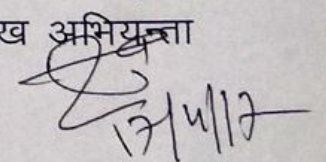 ख अभियन्ता
17/4/17